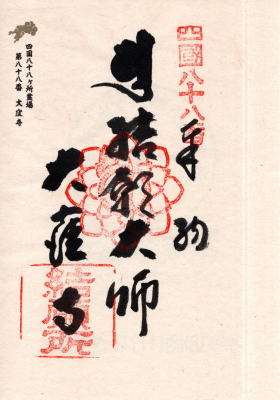 四國八十八番
奉納
結願大師
大窪寺
結願所
四国八十八ヶ所霊場
第八十八番 大窪寺